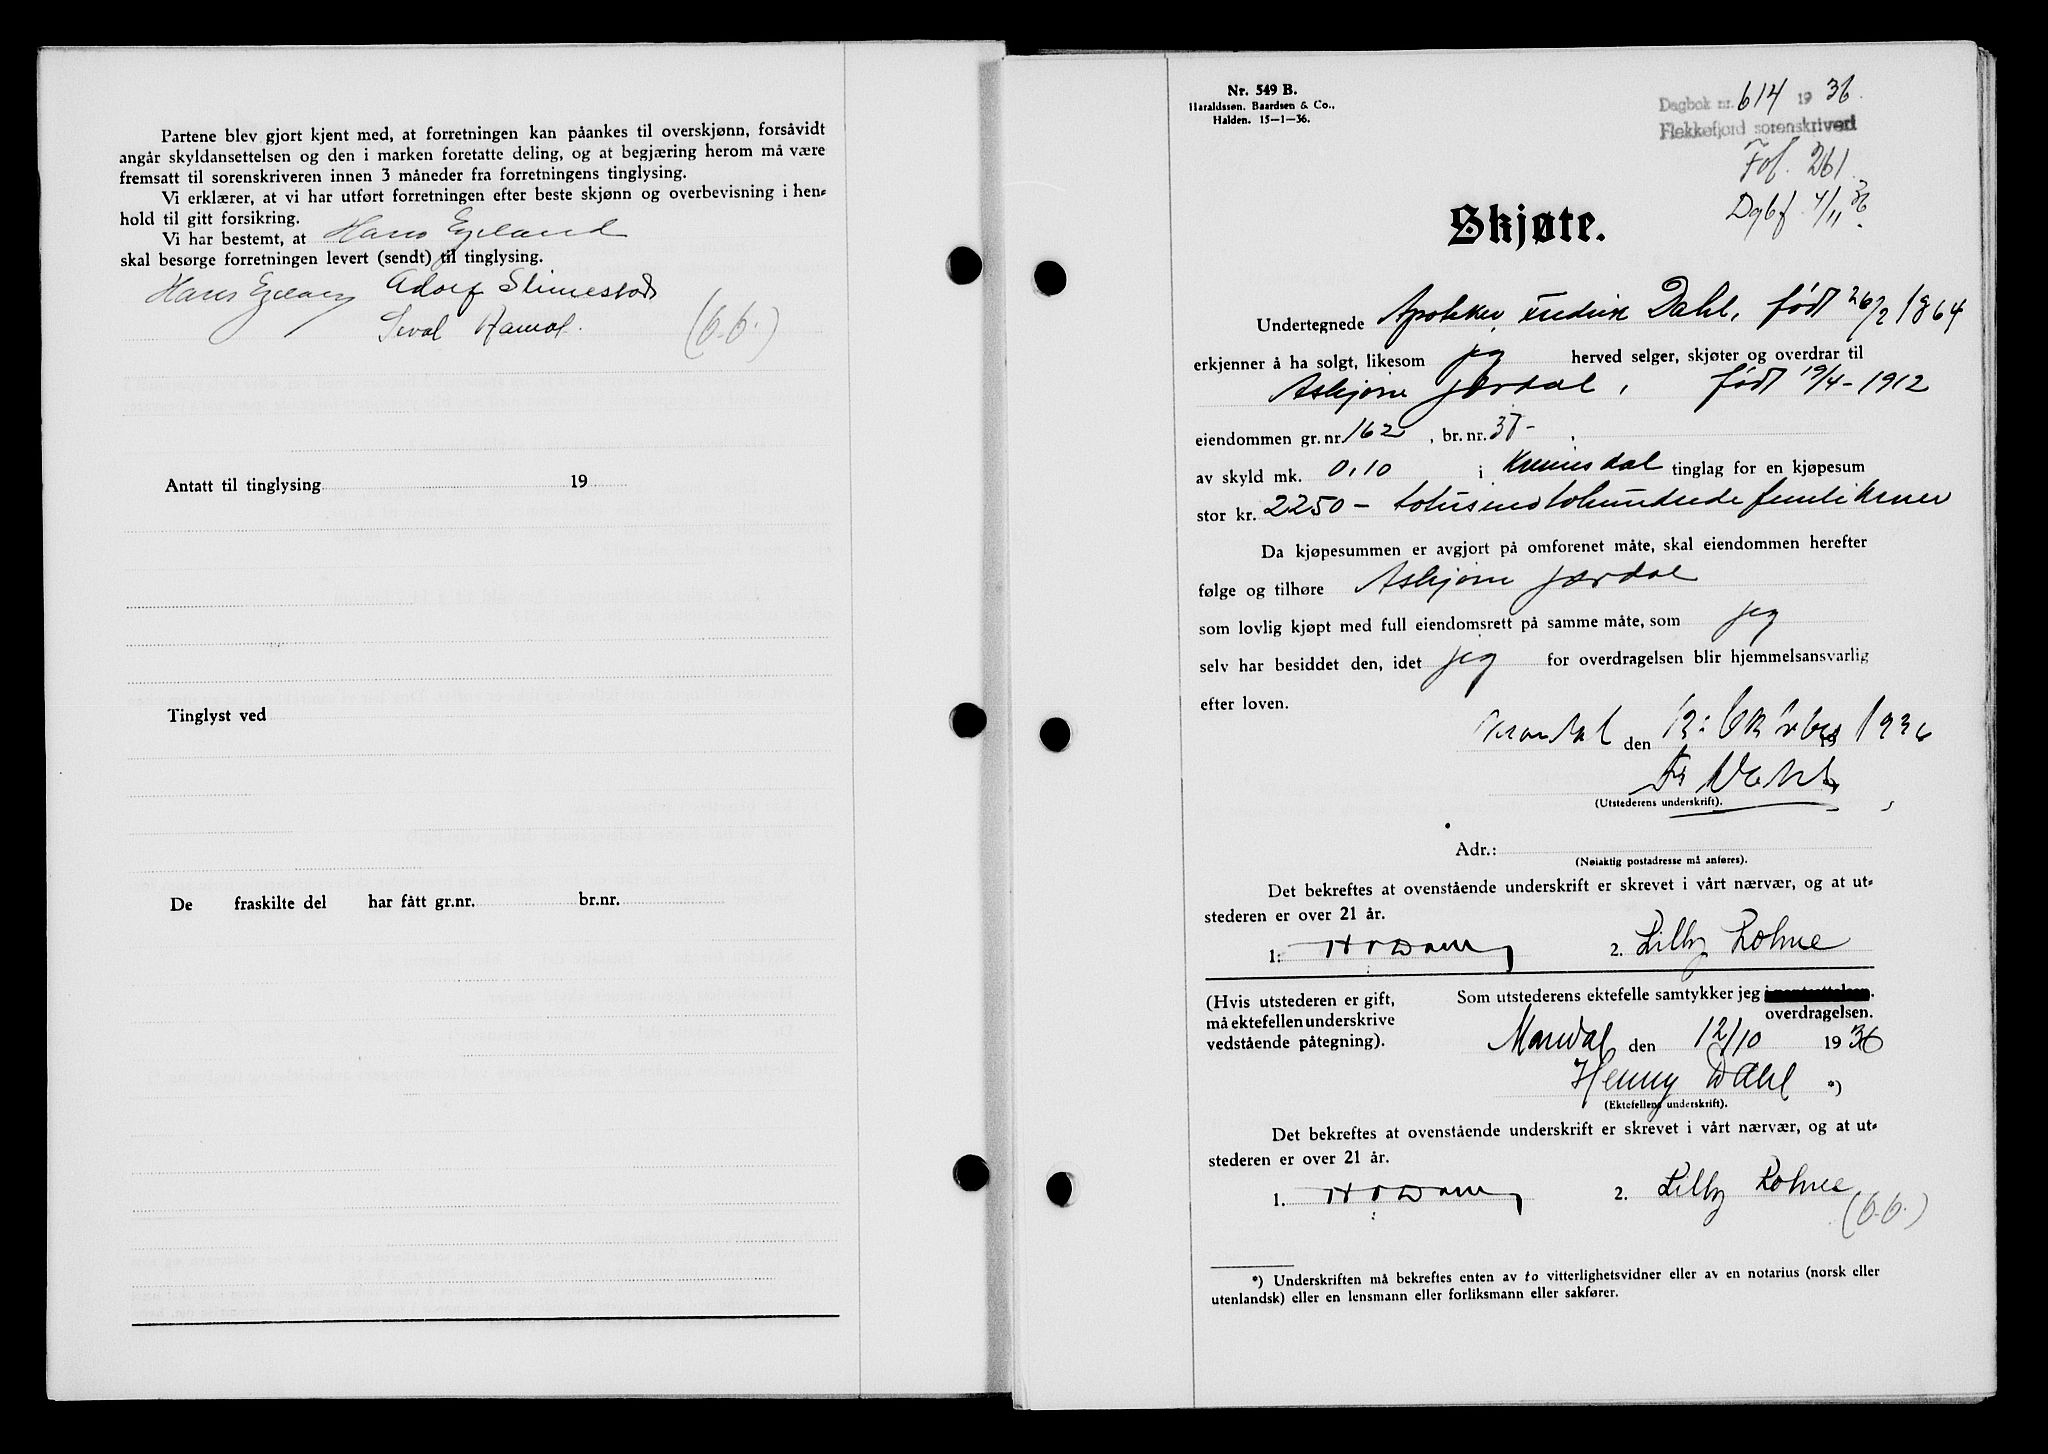 Partene blev gjort kjent med, at forretningen kan påankes til overskjønn, forsåvidt
angår skyldansettelsen og den i marken foretatte deling, og at begjæring herom må være
fremsatt til sorenskriveren innen 3 måneder fra forretningens tinglysing.
Vi erklærer, at vi har utført forretningen efter beste skjønn og overbevisning i hen-
hold til gitt forsikring.
Vi har bestemt, at Hans Egeland
skal besørge forretningen levert (sendt) til tinglysing.
Hans Egeland Adolf Slimestad
Sival Ramsl. (b.b.)
Antatt til tinglysing 19
Tinglyst ved
De fraskilte del har fått gr.nr. br.nr.
Nr. 549 B.
Haraldssøn, Baardsen & Co.,
Halden. 15-1-36.
Dagbok nr. 614 1936.
Flekkefjord sorenskriveri
Fol. 261.
Dgbf. 4/11 36.
Skjøte.
Undertegnede Apoteker Fredrik Dahl, født 26/2 1864
erkjenner å ha solgt, likesom jeg herved selger, skjøter og overdrar til
Asbjørn Jærdal, født 19/4-1912
eiendommen gr.nr. 162, br.nr. 37-
av skyld mk. 0,10 i Kvinesdal tinglag for en kjøpesum
stor kr. 2250 - totusindtohundrede femti kroner
Da kjøpesummen er avgjort på omforenet måte, skal eiendommen herefter
følge og tilhøre Asbjørn Jærdal
som lovlig kjøpt med full eiendomsrett på samme måte, som jeg
selv har besiddet den, idet jeg for overdragelsen blir hjemmelsansvarlig
efter loven.
Mandal den 12. Oktober 1936
Fr Dahl
(Utstederens underskrift).
Adr.:
(Nøiaktig postadresse må anføres).
Det bekreftes at ovenstående underskrift er skrevet i vårt nærvær, og at ut-
stederen er over 21 år.
1. 2. Lilly Rohne
(Hvis utstederen er gift,
må ektefellen underskrive
vedstående påtegning).
Som utstederens ektefelle samtykker jeg i
overdragelsen.
Mandal den 12/10 1936
Henny Dahl *)
(Ektefellens underskrift).
Det bekreftes at ovenstående underskrift er skrevet i vårt nærvær, og at ut-
stederen er over 21 år.
1. 2. Lilly Rohne
(b.b.)
*) Underskriften må bekreftes enten av to vitterlighetsvidner eller av en notarius (norsk eller
utenlandsk) eller en lensmann eller forliksmann eller sakfører.